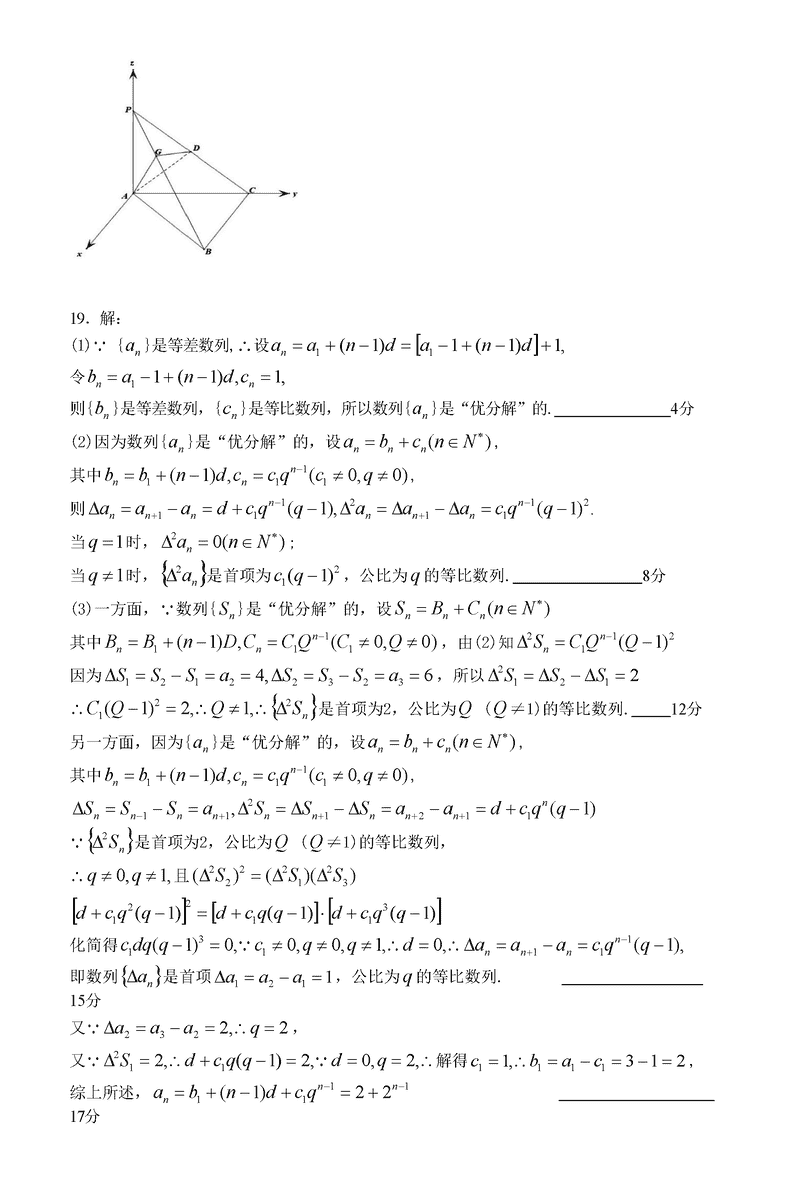 z
P
G
D
A
C
y
x
B
19. 解:
(1)∵ {aₙ}是等差数列,∴设aₙ = a₁ + (n−1)d = [a₁ −1 + (n−1)d] + 1,
令bₙ = a₁ −1 + (n−1)d, cₙ = 1,
则{bₙ}是等差数列, {cₙ}是等比数列, 所以数列{aₙ}是“优分解”的. 4分
(2)因为数列{aₙ}是“优分解”的, 设aₙ = bₙ + cₙ(n∈N*),
其中bₙ = b₁ + (n−1)d, cₙ = c₁qⁿ⁻¹(c₁ ≠ 0, q ≠ 0),
则 Δaₙ = aₙ₊₁ − aₙ = d + c₁qⁿ⁻¹(q−1), Δ²aₙ = Δaₙ₊₁ − Δaₙ = c₁qⁿ⁻¹(q−1)².
当q = 1时, Δ²aₙ = 0(n∈N*);
当q ≠ 1时, {Δ²aₙ}是首项为c₁(q−1)², 公比为q的等比数列. 8分
(3)一方面, ∵数列{Sₙ}是“优分解”的, 设Sₙ = Bₙ + Cₙ(n∈N*)
其中Bₙ = B₁ + (n−1)D, Cₙ = C₁Qⁿ⁻¹(C₁ ≠ 0, Q ≠ 0), 由(2)知Δ²Sₙ = C₁Qⁿ⁻¹(Q−1)²
因为ΔS₁ = S₂ − S₁ = a₂ = 4, ΔS₂ = S₃ − S₂ = a₃ = 6, 所以Δ²S₁ = ΔS₂ − ΔS₁ = 2
∴C₁(Q−1)² = 2,∴Q ≠ 1,∴{Δ²Sₙ}是首项为2, 公比为Q (Q≠1)的等比数列. 12分
另一方面, 因为{aₙ}是“优分解”的, 设aₙ = bₙ + cₙ(n∈N*),
其中bₙ = b₁ + (n−1)d, cₙ = c₁qⁿ⁻¹(c₁ ≠ 0, q ≠ 0),
ΔSₙ = Sₙ₋₁ − Sₙ = aₙ₊₁, Δ²Sₙ = ΔSₙ₊₁ − ΔSₙ = aₙ₊₂ − aₙ₊₁ = d + c₁qⁿ(q−1)
∵{Δ²Sₙ}是首项为2, 公比为Q (Q≠1)的等比数列,
∴q ≠ 0, q ≠ 1, 且(Δ²S₂)² = (Δ²S₁)(Δ²S₃)
[d + c₁q²(q−1)]² = [d + c₁q(q−1)]·[d + c₁q³(q−1)]
化简得c₁dq(q−1)³ = 0,∵c₁ ≠ 0, q ≠ 0, q ≠ 1,∴d = 0,∴Δaₙ = aₙ₊₁ − aₙ = c₁qⁿ⁻¹(q−1),
即数列{Δaₙ}是首项Δa₁ = a₂ − a₁ = 1, 公比为q的等比数列.
15分
又∵Δa₂ = a₃ − a₂ = 2,∴q = 2,
又∵Δ²S₁ = 2,∴d + c₁q(q−1) = 2,∵d = 0, q = 2,∴解得c₁ = 1,∴b₁ = a₁ − c₁ = 3−1 = 2,
综上所述, aₙ = b₁ + (n−1)d + c₁qⁿ⁻¹ = 2 + 2ⁿ⁻¹
17分